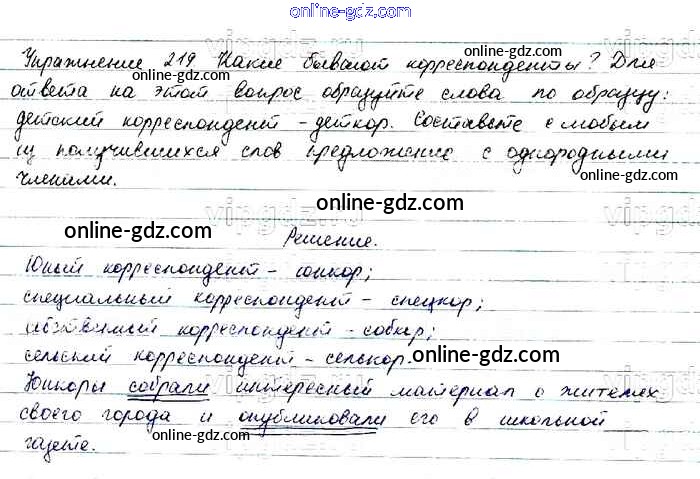 online-gdz.com
Упражнение 219 Какие бывают корреспонденты? Для
ответа на этот вопрос образуйте слова по образцу:
детский корреспондент - деткор. Составьте с любым
из получившихся слов предложение с однородными
членами.
Решение.
Юный корреспондент - юнкор;
специальный корреспондент - спецкор;
собственный корреспондент - собкор;
сельский корреспондент - селькор.
Юнкоры собрали интересный материал о жителях
своего города и опубликовали его в школьной
газете.
online-gdz.com
online-gdz.com
online-gdz.com
online-gdz.com
online-gdz.com
online-gdz.com
online-gdz.com
online-gdz.com
online-gdz.com
online-gdz.com